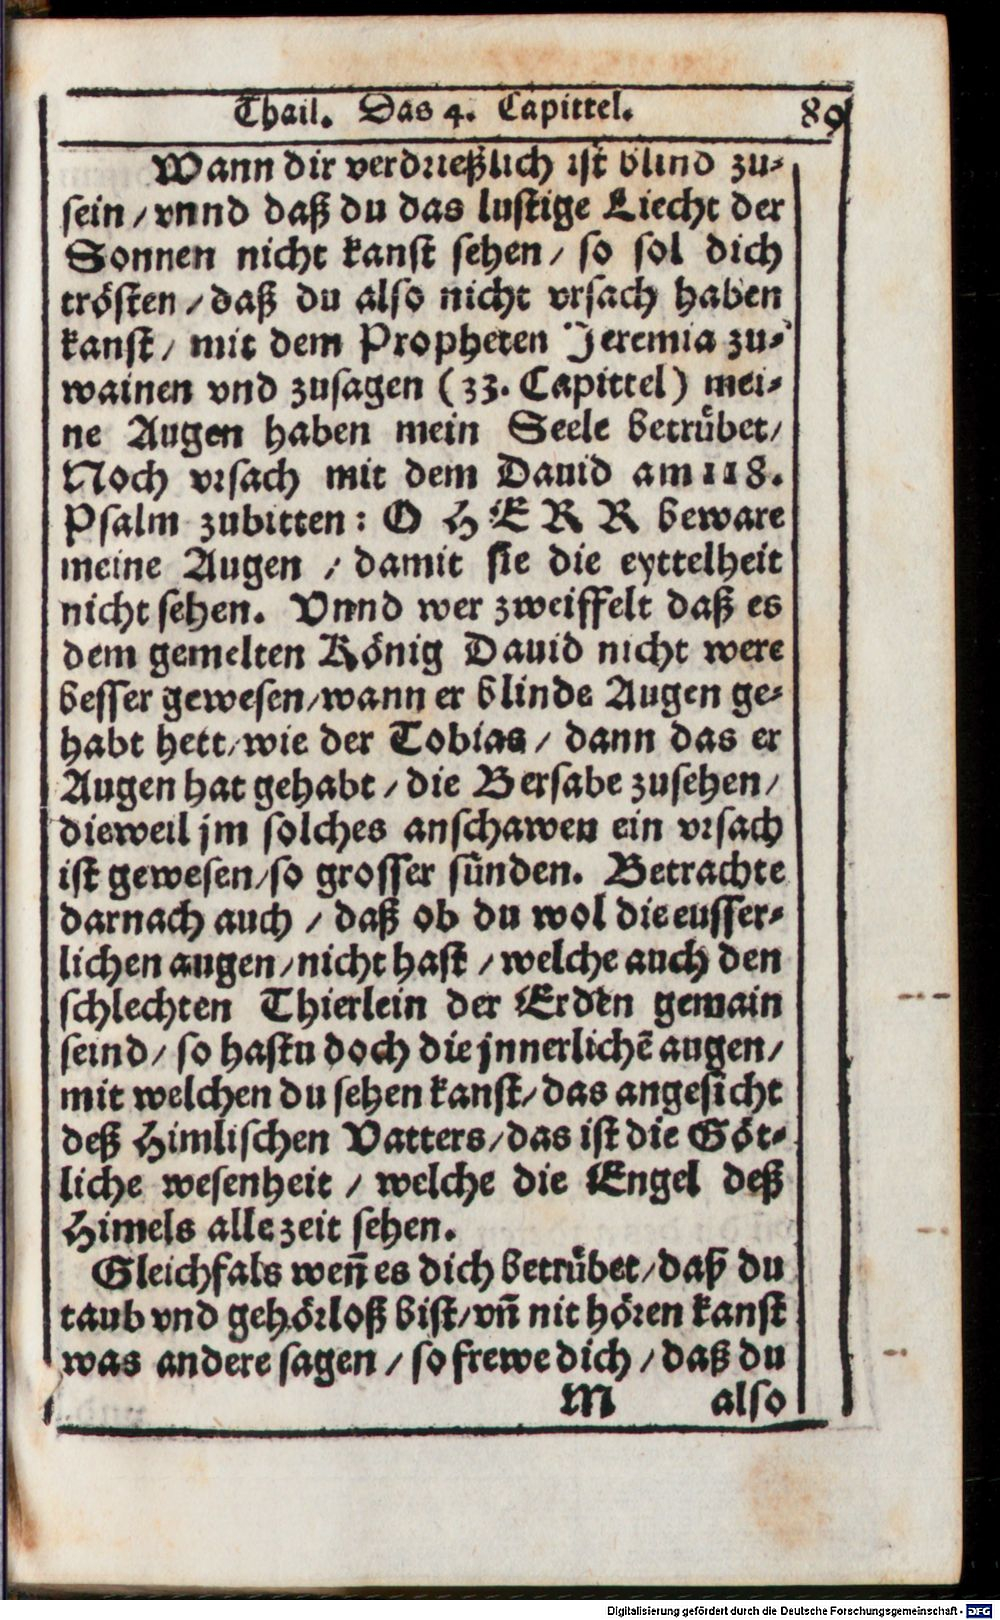 Thail. Das 4. Capittel. 89
Wann dir verdrießlich ist blind zu-
sein / vnnd daß du das lustige Liecht der
Sonnen nicht kanst sehen / so sol dich
trösten / daß du also nicht vrsach haben
kanst / mit dem Propheten Jeremia zu-
wainen vnd zusagen (33. Capittel) mei-
ne Augen haben mein Seele betrübet /
Noch vrsach mit dem Dauid am 118.
Psalm zubitten: O HERR beware
meine Augen / damit sie die eyttelheit
nicht sehen. Vnnd wer zweiffelt daß es
dem gemelten König Dauid nicht were
besser gewesen / wann er blinde Augen ge-
habt hett / wie der Tobias / dann das er
Augen hat gehabt / die Bersabe zusehen /
dieweil jm solches anschawen ein vrsach
ist gewesen / so grosser sünden. Betrachte
darnach auch / daß ob du wol die eusser-
lichen augen / nicht hast / welche auch den
schlechten Thierlein der Erden gemain
seind / so hastu doch die jnnerlichē augen /
mit welchen du sehen kanst / das angesicht
deß Himlischen Vatters / das ist die Göt-
liche wesenheit / welche die Engel deß
Himels allezeit sehen.
Gleichfals wen̄ es dich betrübet / daß du
taub vnd gehörloß bist / vn̄ nit hören kanst
was andere sagen / so frewe dich / daß du
M also
Digitalisierung gefördert durch die Deutsche Forschungsgemeinschaft - DFG